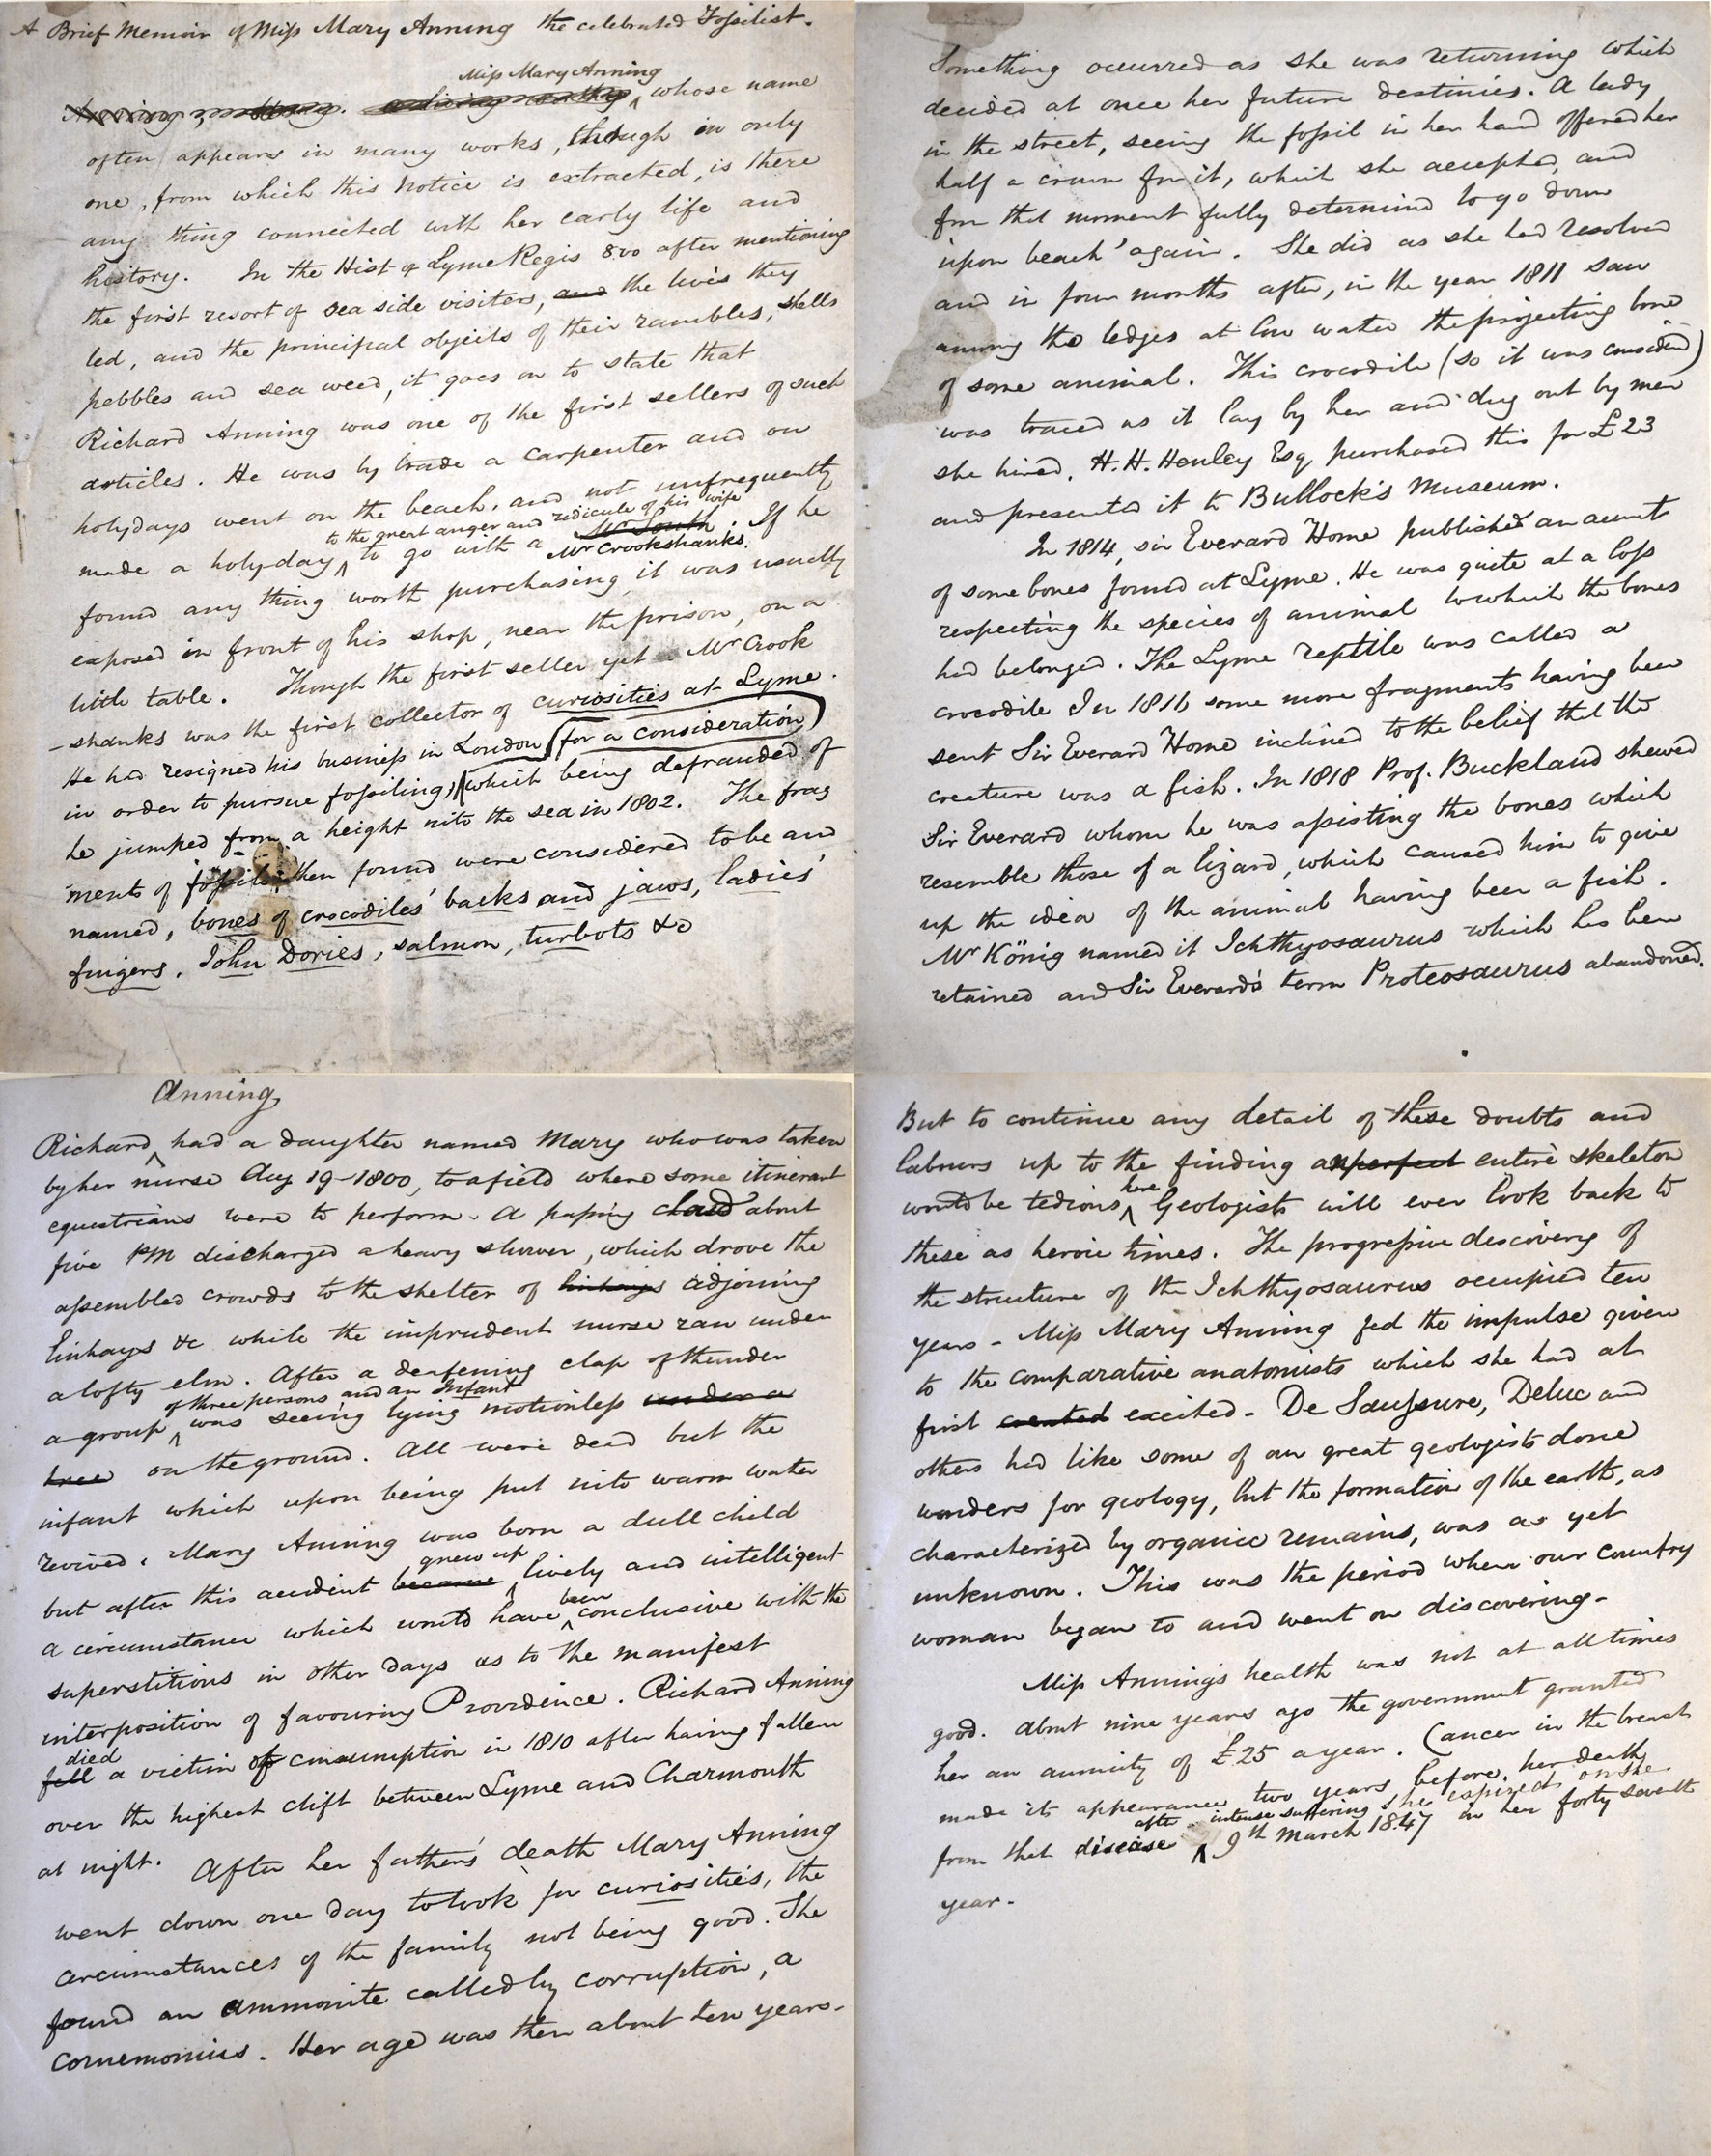 A Brief Memoir of Miss Mary Anning the celebrated Fossilist.
Miss Mary Anning
whose name
often appears in many works, though in only
one, from which this notice is extracted, is there
any thing connected with her early life and
history. In the Hist of Lyme Regis 8vo after mentioning
the first resort of sea side visiters, and the lives they
led, and the principal objects of their rambles, shells
pebbles and sea weed, it goes on to state that
Richard Anning was one of the first sellers of such
articles. He was by trade a carpenter and on
holydays went on the beach, and not unfrequently
to the great anger and ridicule of his wife
made a holyday to go with a Mr South. If he
Mr Crookshanks.
found any thing worth purchasing it was usually
exposed in front of his shop, near the prison, on a
little table. Though the first seller yet a Mr Crook
-shanks was the first collector of curiosities at Lyme.
He had resigned his business in London (for a consideration)
in order to pursue fossiling, which being defrauded of
he jumped from a height into the sea in 1802. The frag
ments of fossils then found were considered to be and
named, bones of crocodiles' backs and jaws, ladies'
fingers, John Dories, salmon, turbots &c
Anning
Richard had a daughter named Mary who was taken
by her nurse Aug 19-1800, to a field where some itinerant
equestrians were to perform. A passing cloud about
five PM discharged a heavy shower, which drove the
assembled crowds to the shelter of linhays adjoining
linhays &c while the imprudent nurse ran under
a lofty elm. After a deafening clap of thunder
of three persons and an Infant
a group was seeing lying motionless under a
tree on the ground. All were dead but the
infant which upon being put into warm water
revived. Mary Anning was born a dull child
grew up
but after this accident became lively and intelligent
been
a circumstance which would have conclusive with the
superstitious in other days as to the manifest
interposition of favouring Providence. Richard Anning
died
fell a victim of consumption in 1810 after having fallen
over the highest clift between Lyme and Charmouth
at night. After her father's death Mary Anning
went down one day to look for curiosities, the
circumstances of the family not being good. She
found an ammonite called by corruption, a
cornemonius. Her age was then about ten years.
Something occurred as she was returning which
decided at once her future destinies. A lady
in the street, seeing the fossil in her hand offered her
half a crown for it, which she accepted, and
from that moment fully determined to go down
'upon beach' again. She did as she had resolved
and in four months after, in the year 1811 saw
among the ledges at low water the projecting bone
of some animal. This crocodile (so it was considered)
was traced as it lay by her and dug out by men
she hired. H. H. Henley Esq purchased this for £23
and presented it to Bullock's Museum.
In 1814, sir Everard Home published an acount
of some bones found at Lyme. He was quite at a loss
respecting the species of animal to which the bones
had belonged. The Lyme reptile was called a
crocodile In 1816 some more fragments having been
sent Sir Everard Home inclined to the belief that the
creature was a fish. In 1818 Prof. Buckland shewed
Sir Everard whom he was assisting the bones which
resemble those of a lizard, which caused him to give
up the idea of the animal having been a fish.
Mr König named it Ichthyosaurus which has been
retained and Sir Everard's term Proteosaurus abandoned.
But to continue any detail of these doubts and
labours up to the finding an perfect entire skeleton
here
would be tedious, Geologists will ever look back to
these as heroic times. The progressive discovery of
the structure of the Ichthyosaurus occupied ten
years - Miss Mary Anning fed the impulse given
to the comparative anatomists which she had at
first created excited - De Saussure, Deluc and
others had like some of our great geologists done
wonders for geology, but the formation of the earth, as
characterized by organic remains, was as yet
unknown. This was the period when our country
woman began to and went on discovering.
Miss Anning's health was not at all times
good. About nine years ago the government granted
her an annuity of £25 a year. Cancer in the breast
made its appearance two years before her death
after intense suffering she expired on the
from that disease 9th March 1847 in her forty seventh
year.